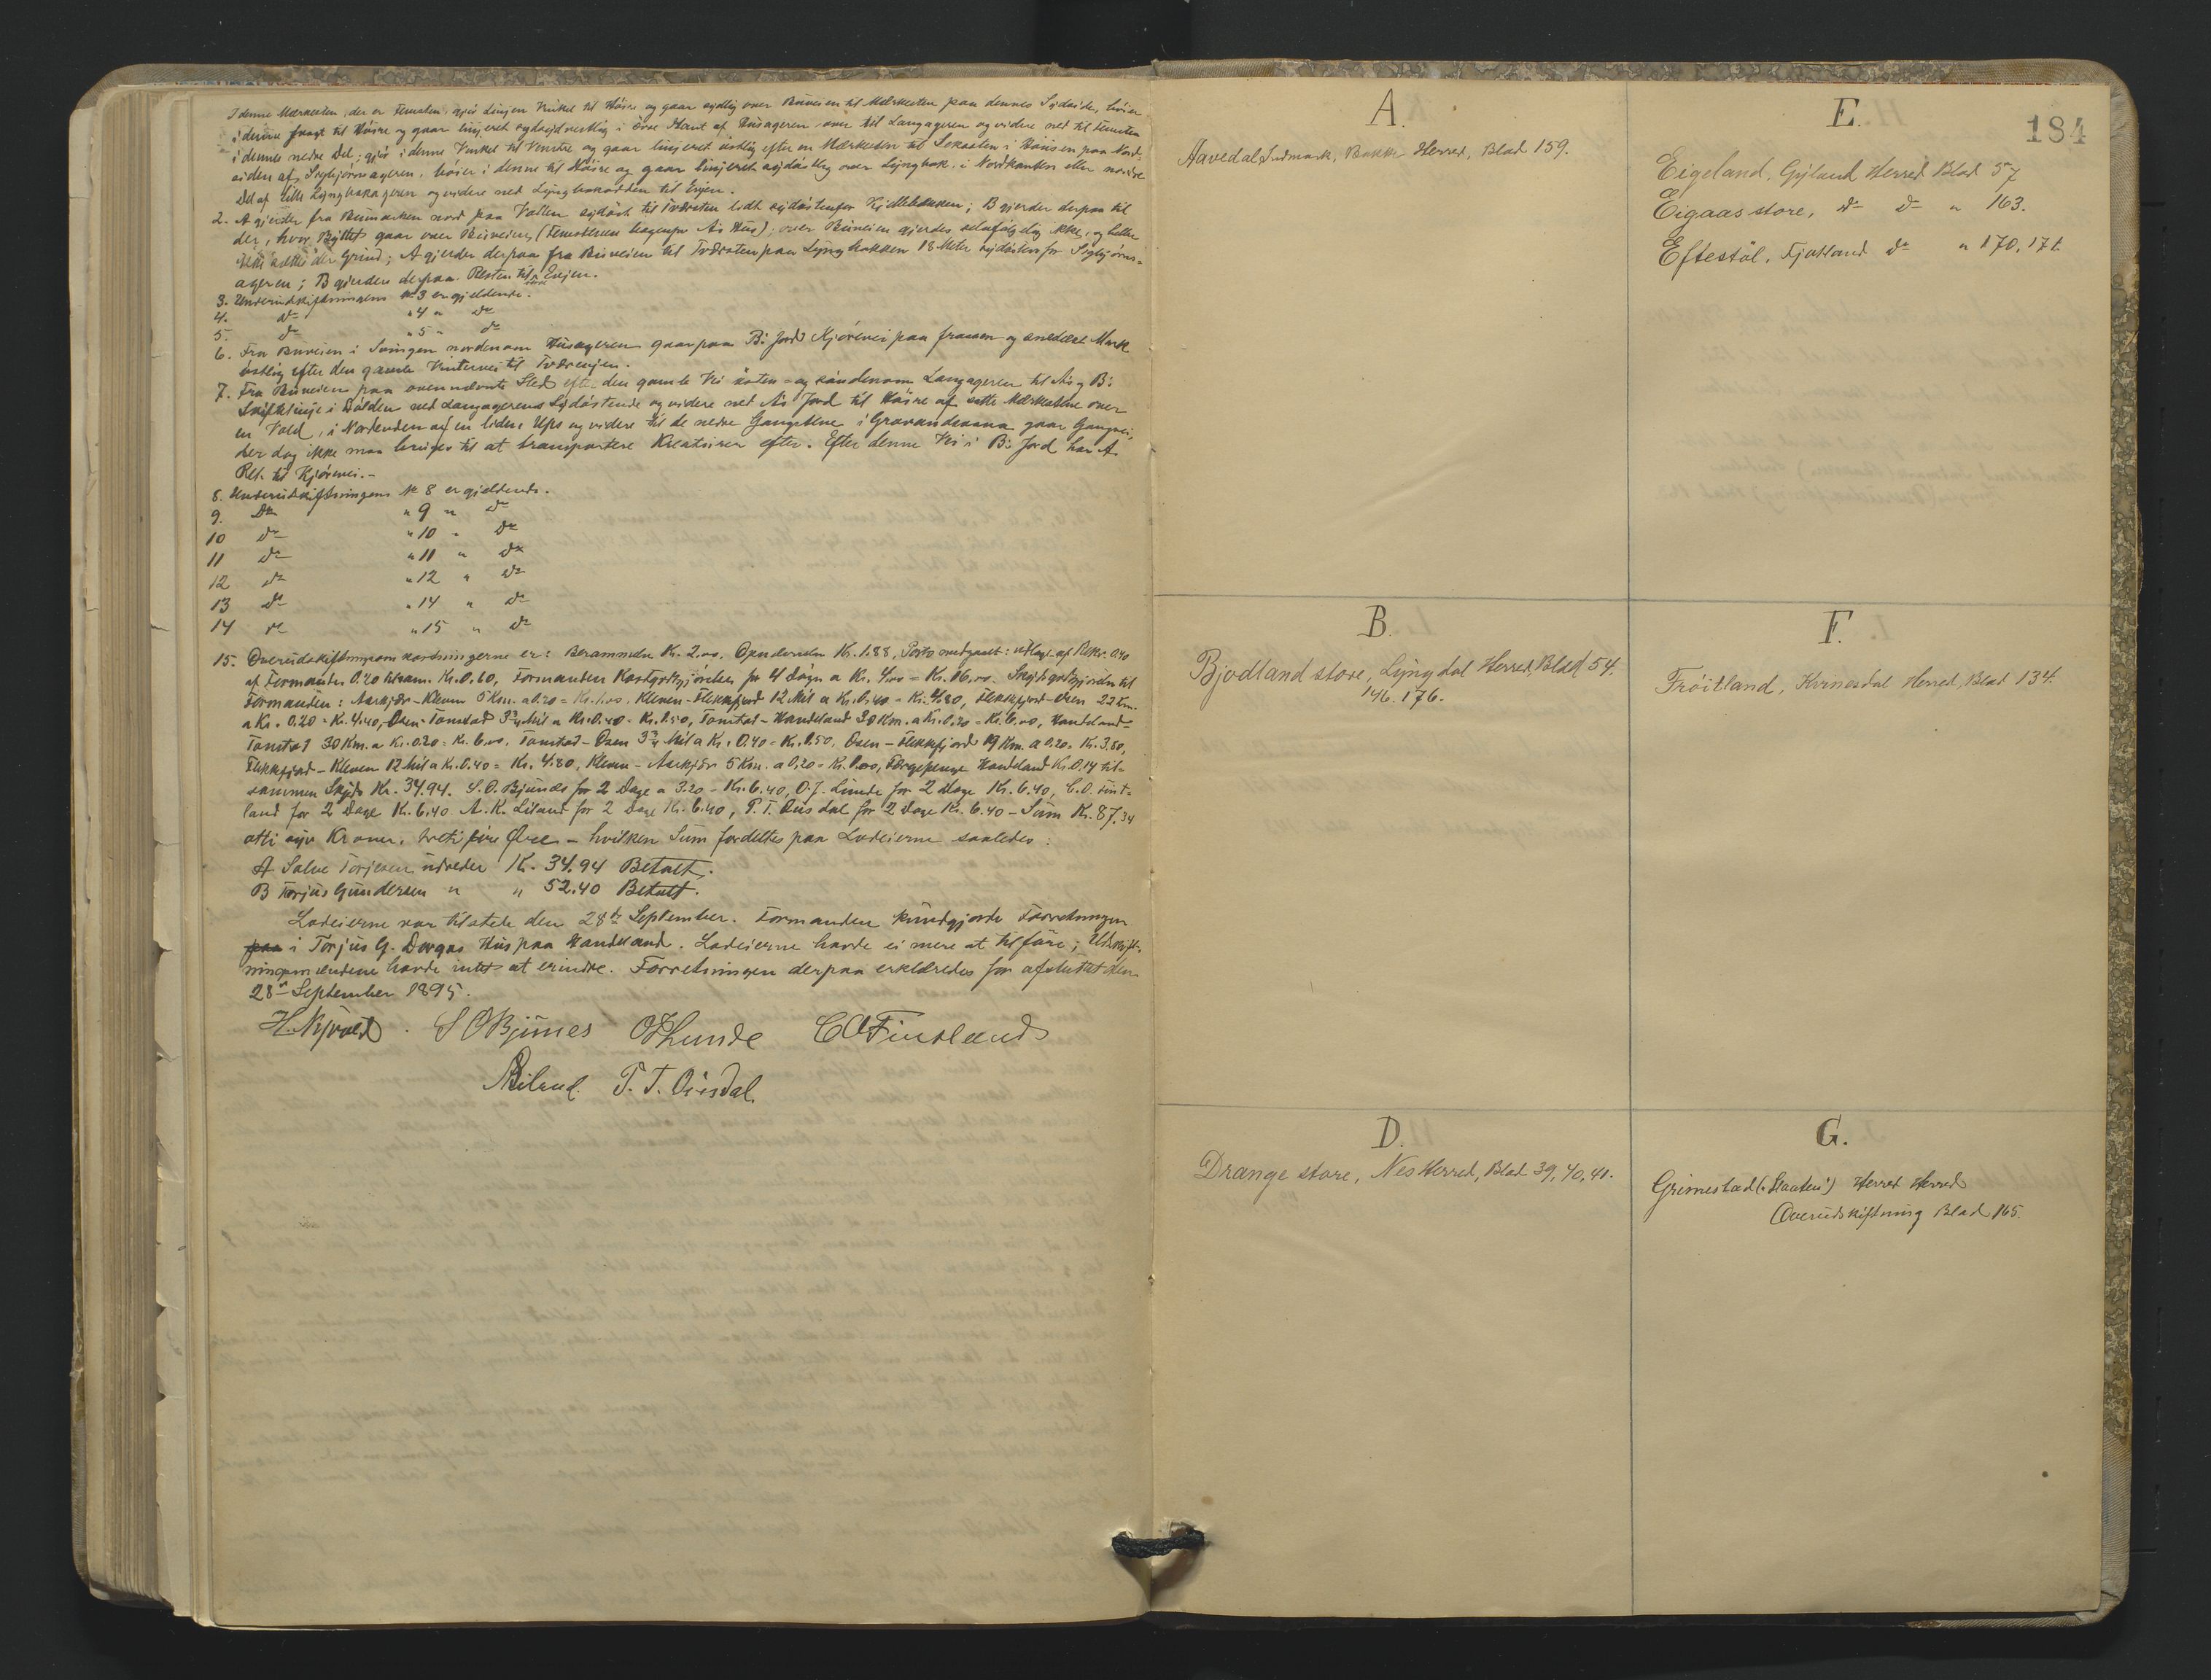 I denne Mærkesten, der er Femsten, gjör Linjen Vinkel til Höire og gaar sydlig over Buveien til Mærkesten paa dennes Sydside, böier
i denne svagt til Höire og gaar linjeret sydsydvestlig i övre Kant af Husageren, over til Langageren og videre ned til Femsten
i dennes nedre Del; gjör i denne Vinkel til Venstre og gaar linjeret östlig efter en Mærkesten til Seksten i Böisen paa Nord-
siden af Sigbjörnsageren, böier i denne til Höire og gaar linjeret sydöstlig over Lyngbak, i Nordkanten eller nordre
Del af lille Lyngbakageren og videre ned Lyngbakodden til Evjen.
2. A gjerder fra Bumarken nord paa Vollen sydöst til Tværsten lidt sydöstenfor Kjillebækken; B gjerder derpaa til
der, hvor Byttet gaar over Buveien, (Femstenen bagenfor A's Hus); over Buveien gjerdes selvfølgelig ikke, og heller
ikke sættes der Grind; A gjerder derpaa fra Buveien til Tværsten paa Lyngbakken 18 Meter sydöstenfor Sigbjörns-
ageren; B gjerder derpaa Resten til Evjen.
3. Underudskiftningens № 3 er gjeldende.
4. do " 4 " do
5. do " 5 " do
6. Fra Buveien i Svingen nordenom Husageren gaar paa B's Jord Kjörevei paa frossen og snedækt Mark
östlig efter den gamle Vintervei til Tværevjen.
7. Fra Buveien paa ovennævnte Sted efter den gamle Vei östen- og söndenom Langageren til A's og B's
Skiftelinje i Dölden ved Langagerens Sydöstende og videre ned A's Jord til Höire af satte Mærkestene over
en Vold, i Nordenden af en liden Ups og videre til de nedre Gangstene i Gravandsaana gaar Gangvei,
der dog ikke maa bruges til at transportere Kreaturer efter. Efter denne Vei i B's Jord har A
Ret til Kjörevei.-
8. Underudskiftningens № 8 er gjeldende.
9. Do " 9 " do
10 do " 10 " do
11 do " 11 " do
12 do " 12 " do
13 do " 14 " do
14 do " 15 " do
15. Overudskiftningsomkostningerne er: Berammelse Kr. 2.00, Opnævnelse Kr. 1.88, Porto medgaaet: udlagt af Rekv. 0.40
af Formanden 0.20 tilsam. Kr. 0.60, Formanden Kostgodtgjörelse for 4 Dögn a Kr. 4.00 = Kr. 16.00. Skydsgodtgjörelse til
Formanden: Aaskjær-Kleven 5 Km. a 0.20 = Kr. 1.00, Kleven-Flekkefjord 12 Mil a Kr. 0.40 = Kr. 4.80, Flekkefjord-Osen 22 Km.
a Kr. 0.20 = Kr. 4.40, Osen-Tonstad 3¾ Mil a Kr. 0.40 = Kr. 1.50, Tonstad-Handeland 30 Km. a Kr. 0.20 = Kr. 6.00, Handeland-
Tonstad 30 Km. a Kr. 0.20 = Kr. 6.00, Tonstad-Osen 3¾ Mil a Kr. 0.40 = Kr. 1.50, Osen-Flekkefjord 19 Km. a 0.20 = Kr. 3.80,
Flekkefjord-Kleven 12 Mil a Kr. 0.40 = Kr. 4.80, Kleven-Aaskjær 5 Km. a 0.20 = Kr. 1.00, Færgepenge Handeland Kr. 0.14 til-
sammen Skyds Kr. 34.94. S. O. Bjunes for 2 Dage a 3.20 = Kr. 6.40, O. J. Lunde for 2 Dage Kr. 6.40, C. O. Fint-
land for 2 Dage Kr. 6.40. A. K. Liland for 2 Dage Kr. 6.40, P. T. Ousdal for 2 Dage Kr. 6.40 - Sum Kr. 87.34
otti syv Kroner, treti fire Øre - hvilken Sum fordeltes paa Lodeierne saaledes:
A Salve Torjesen udreder Kr. 34.94 Betalt.
B Torjus Gundersen " " 52.40 Betalt.
Lodeierne var tilstede den 28de September. Formanden kundgjorde Forretningen
paa i Torjus G. Dorgas Hus paa Handeland. Lodeierne havde ei mere at tilføre; Udskift-
ningsmændene havde intet at erindre. Forretningen derpaa erklæredes for afsluttet den
28de September 1895.
S O Bjunes O J Lunde C O Fintland
Liland. P. T. Ousdal.
184
A.
Aavedal Indmark, Bakke Herred, Blad 159.
E.
Eigeland, Gyland Herred Blad 57
Eigaas store, do do " 163.
Eftestöl, Fjotland do " 170, 171.
B.
Bjodland store, Lyngdal Herred, Blad 54.
146. 176.
F.
Fröitland, Kvinesdal Herred, Blad 134.
D.
Drange store, Nes Herred, Blad 39, 40, 41.
G.
Grimestad ("Slaaten") Herred Herred
Overudskiftning Blad 165.